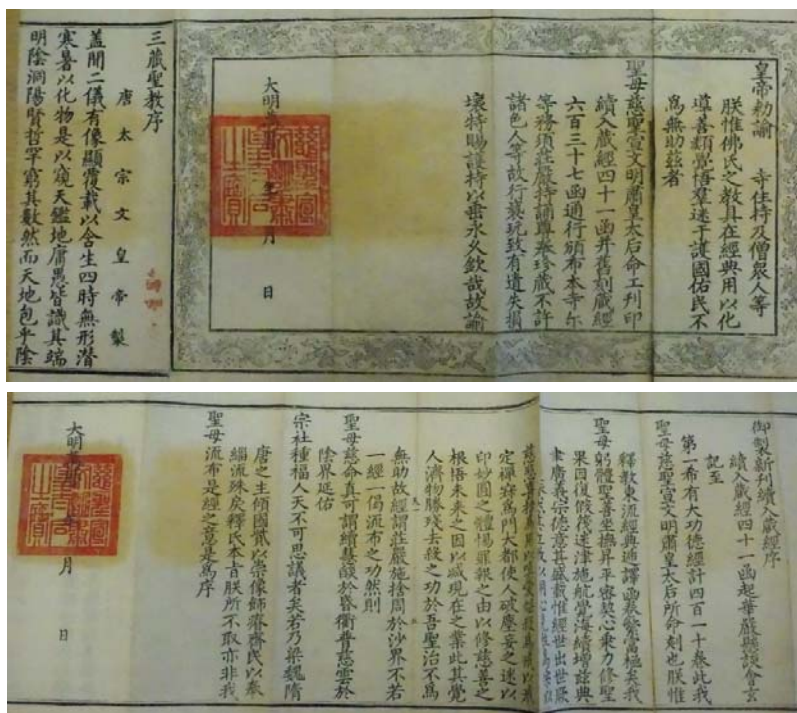 皇帝勅諭　寺住持及僧眾人等
朕惟佛氏之教具在經典用以化
導善類覺悟羣迷于護國佑民不
為無助茲者
聖母慈聖宣文明肅皇太后命工刊印
續入藏經四十一函并舊刻藏經
六百三十七函通行頒布本寺尓
等務須莊嚴持誦尊奉珍藏不許
諸色人等故行褻玩致有遺失損
壞特賜護持以垂永久欽哉故諭
大明萬曆　年　月　日
三藏聖教序
唐太宗文皇帝製
蓋聞二儀有像顯覆載以含生四時無形潛
寒暑以化物是以窺天鑑地庸愚皆識其端
明陰洞陽賢哲罕窮其數然而天地包乎陰
御製新刊續入藏經序
續入藏經四十一函起華嚴懸談會玄
記至
第一希有大功德經計四百一十卷此我
聖母慈聖宣文明肅皇太后所命刻也朕惟
釋教東流經典遞譯函卷繁富極矣我
聖母躬體聖善坐撫昇平密契心乘力修聖
果因復假筏迷津施航覺海續增茲典
聿廣義宗德意甚盛蓋惟經世出世厥
慈悲喜捨為用以
定禪寂為門大都使人破塵妄之迷以
印妙圓之體惕罪報之由以修慈善之
根悟未來之因以滅現在之業此其覺
人濟物勝殘去殺之功於吾聖治不為
無助故經謂莊嚴施捨周於沙界不若
一經一偈流布之功然則
聖母慈命真可謂續慧燄於昏衢普慈雲於
陰界延佑
宗社種福人天不可思議者矣若乃梁魏隋
唐之主傾國貲以崇像飾瘠齊民以奉
緇流殊戾釋氏本旨朕所不取亦非我
聖母流布是經之意是為序
大明　月　日